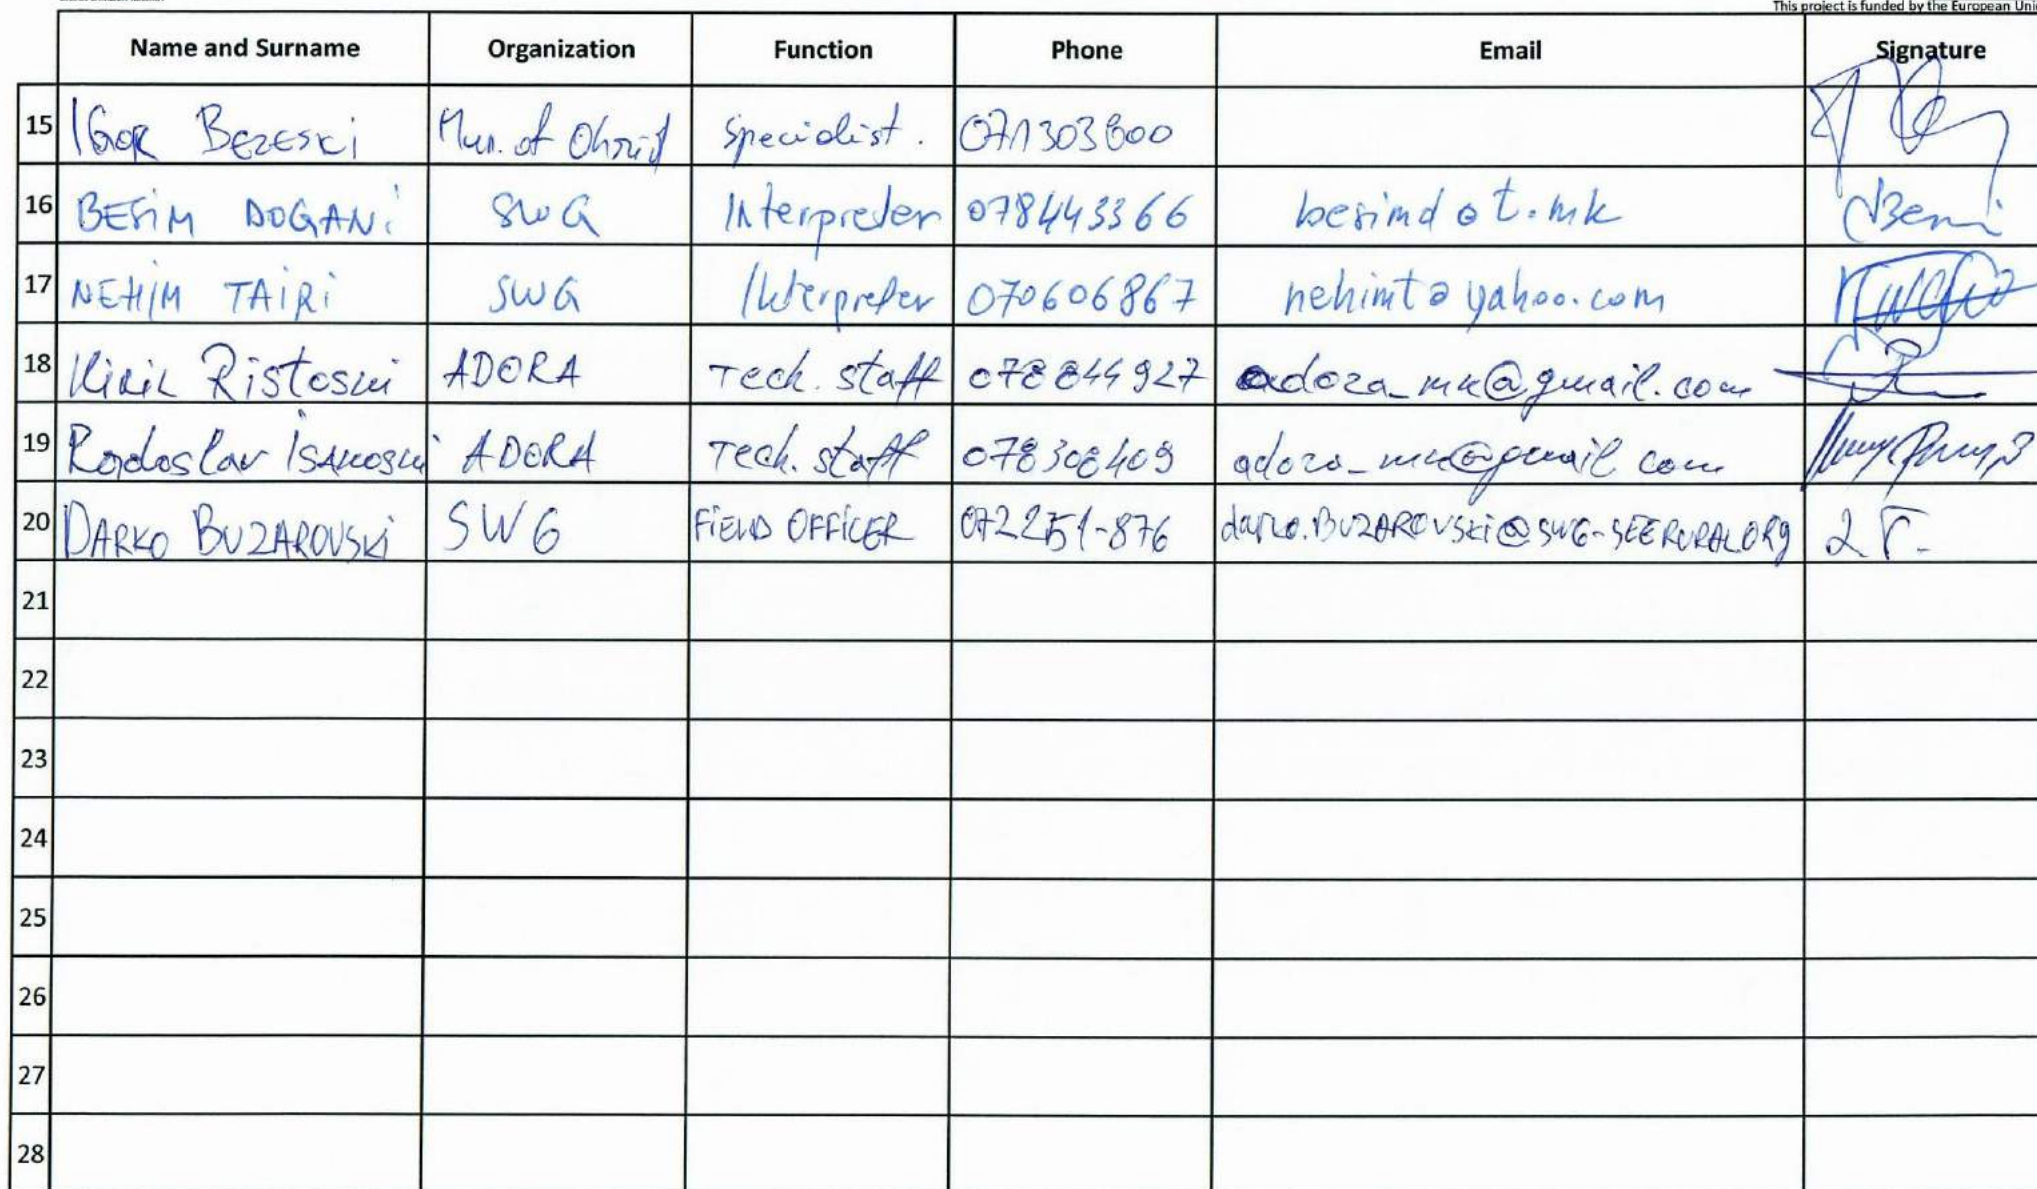 This project is funded by the European Uni
Name and Surname Organization Function Phone Email Signature
15 IGOR BEZESKI Mun. of Ohrid Specialist. 071303600
16 BESIM DOGANi SWG Interpreter 078443366 besimd@t.mk
17 NEHIM TAIRi SWG Interpreter 070606867 nehimt@yahoo.com
18 Kiril Ristoski ADORA Tech. staff 078844927 adora_mk@gmail.com
19 Radoslav Isakoski ADORA Tech. staff 078308409 adora_mk@gmail com
20 DARKO BUZAROVSKi SWG FiELD OFFiCER 072251-876 darko.BUZAROVSKi@SWG-SEERURAL.ORg
21
22
23
24
25
26
27
28